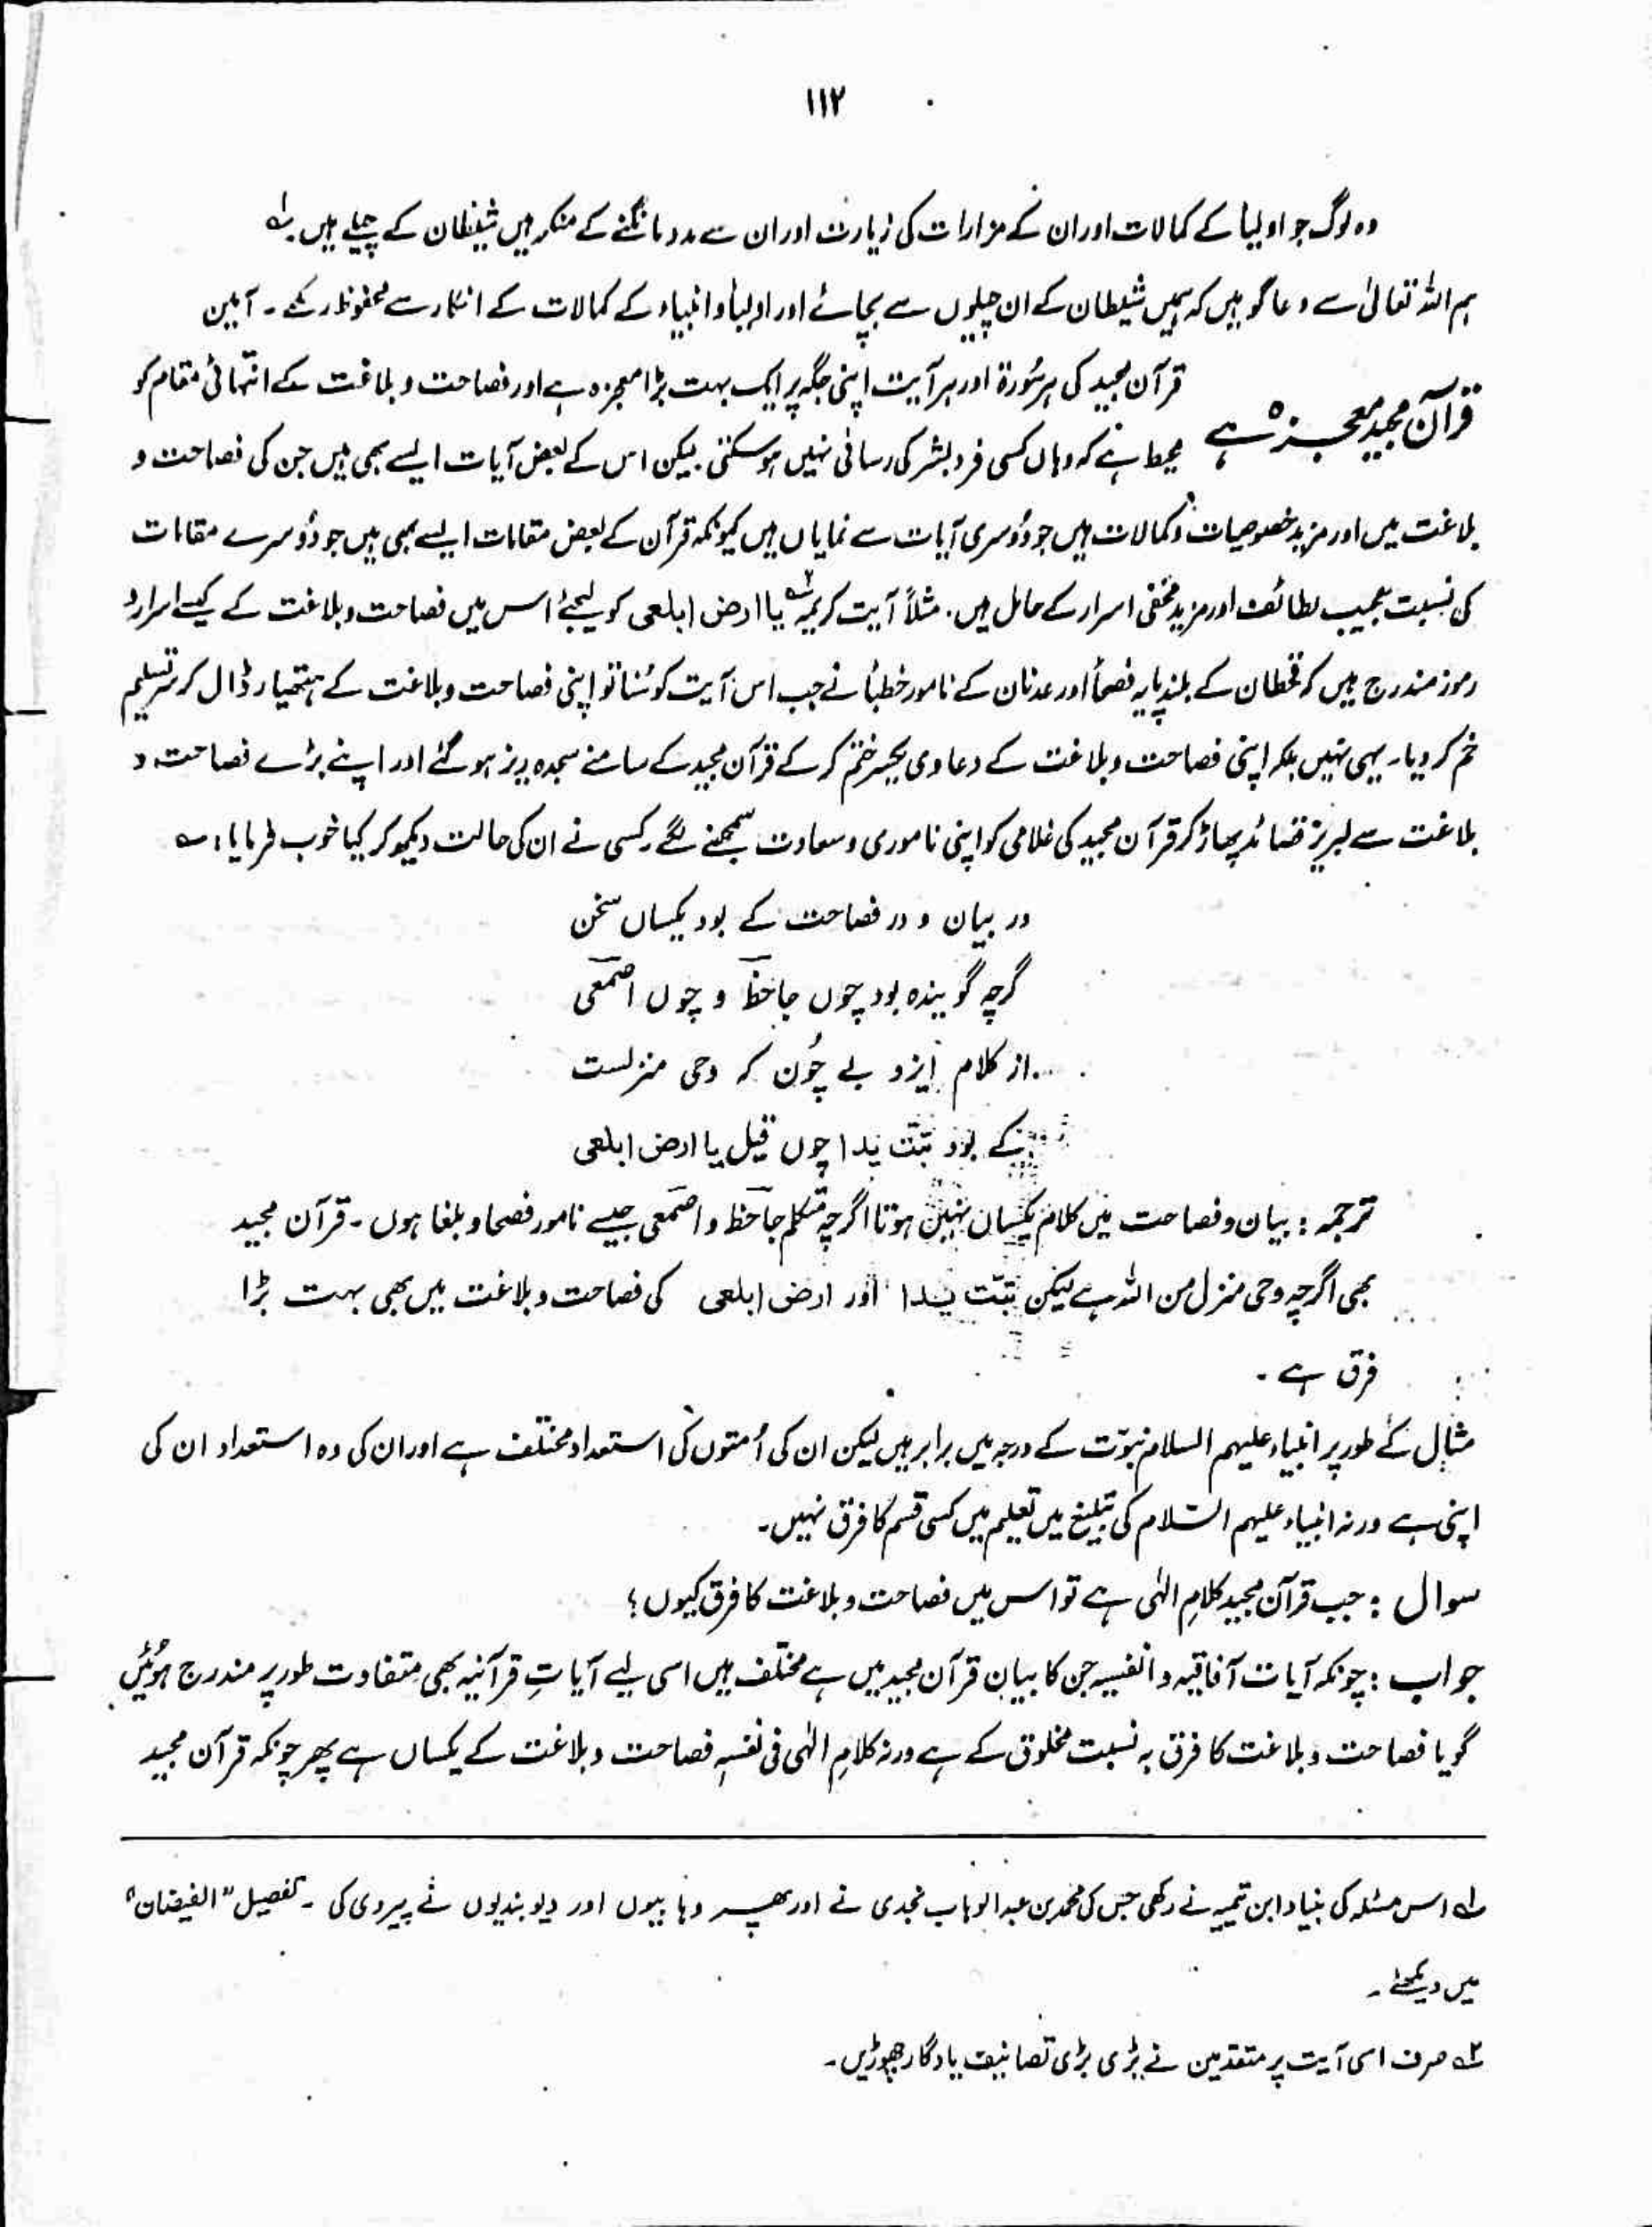 ۱۱۲
وہ لوگ جو اولیأ کے کمالات اور ان کے مزارات کی زیارت اور ان سے مدد مانگنے کے منکر ہیں شیطان کے چیلے ہیں۔ ۱؎
ہم اللہ تعالیٰ سے دعا گو ہیں کہ ہمیں شیطان کے ان چیلوں سے بچائے اور اولیأ و انبیاء کے کمالات کے انکار سے محفوظ رکھے۔ آمین
قرآن مجید معجزہ ہے
قرآن مجید کی ہر سُورۃ اور ہر آیت اپنی جگہ پر ایک بہت بڑا معجزہ ہے اور فصاحت و بلاغت کے انتہائی مقام کو
محیط ہے کہ وہاں کسی فرد بشر کی رسائی نہیں ہو سکتی لیکن اس کے بعض آیات ایسے بھی ہیں جن کی فصاحت و
بلاغت میں اور مزید خصوصیات و کمالات ہیں جو دُوسری آیات سے نمایاں ہیں کیونکہ قرآن کے بعض مقامات ایسے بھی ہیں جو دُوسرے مقامات
کی نسبت عجیب لطائف اور مزید مخفی اسرار کے حامل ہیں۔ مثلاً آیت کریمہ ۲؎ یا ارض ابلعی کو لیجئے اس میں فصاحت و بلاغت کے کیسے اسرار و
رموز مندرج ہیں کہ قحطان کے بلند پایہ فصحأ اور عدنان کے نامور خطبأ نے جب اس آیت کو سُنا تو اپنی فصاحت و بلاغت کے ہتھیار ڈال کر سرِ تسلیم
خم کر دیا۔ یہی نہیں بلکہ اپنی فصاحت و بلاغت کے دعاوی یکسر ختم کر کے قرآن مجید کے سامنے سجدہ ریز ہو گئے اور اپنے بڑے فصاحت و
بلاغت سے لبریز قصائد پھاڑ کر قرآن مجید کی غلامی کو اپنی ناموری و سعادت سمجھنے لگے۔ کسی نے ان کی حالت دیکھ کر کیا خوب فرمایا: ؎
در بیان و در فصاحت کے بود یکساں سخن
گرچہ گویندہ بود چوں جاحظؔ و چوں اصمعیؔ
از کلام ایزد بے چُون کہ وحی منزلست
کے بود تبّت یدا چوں قیل یا ارض ابلعی
ترجمہ: بیان و فصاحت میں کلام یکساں نہیں ہوتا اگرچہ متکلم جاحظؔ و اصمعیؔ جیسے نامور فصحا و بلغا ہوں۔ قرآن مجید
بھی اگرچہ وحی منزل من اللہ ہے لیکن تبّت یدا اور ارض ابلعی کی فصاحت و بلاغت میں بھی بہت بڑا
فرق ہے۔
مثال کے طور پر انبیاء علیہم السلام نبوّت کے درجہ میں برابر ہیں لیکن ان کی اُمتوں کی استعداد مختلف ہے اور ان کی وہ استعداد ان کی
اپنی ہے ورنہ انبیاء علیہم السّلام کی تبلیغ میں تعلیم میں کسی قسم کا فرق نہیں۔
سوال: جب قرآن مجید کلامِ الٰہی ہے تو اس میں فصاحت و بلاغت کا فرق کیوں؟
جواب: چونکہ آیات آفاقیہ و انفسیہ جن کا بیان قرآن مجید میں ہے مختلف ہیں اسی لیے آیاتِ قرآنیہ بھی متفاوت طور پر مندرج ہُوئیں
گویا فصاحت و بلاغت کا فرق بہ نسبت مخلوق کے ہے ورنہ کلامِ الٰہی فی نفسہٖ فصاحت و بلاغت کے یکساں ہے پھر چونکہ قرآن مجید
۱؎ اس مسئلہ کی بنیاد ابن تیمیہ نے رکھی جس کی محمد بن عبد الوہاب نجدی نے اور پھر وہابیوں اور دیوبندیوں نے پیروی کی۔ تفصیل "الفیضان"
میں دیکھئے۔
۲؎ صرف اسی آیت پر متقدمین نے بڑی بڑی تصانیف یادگار چھوڑیں۔